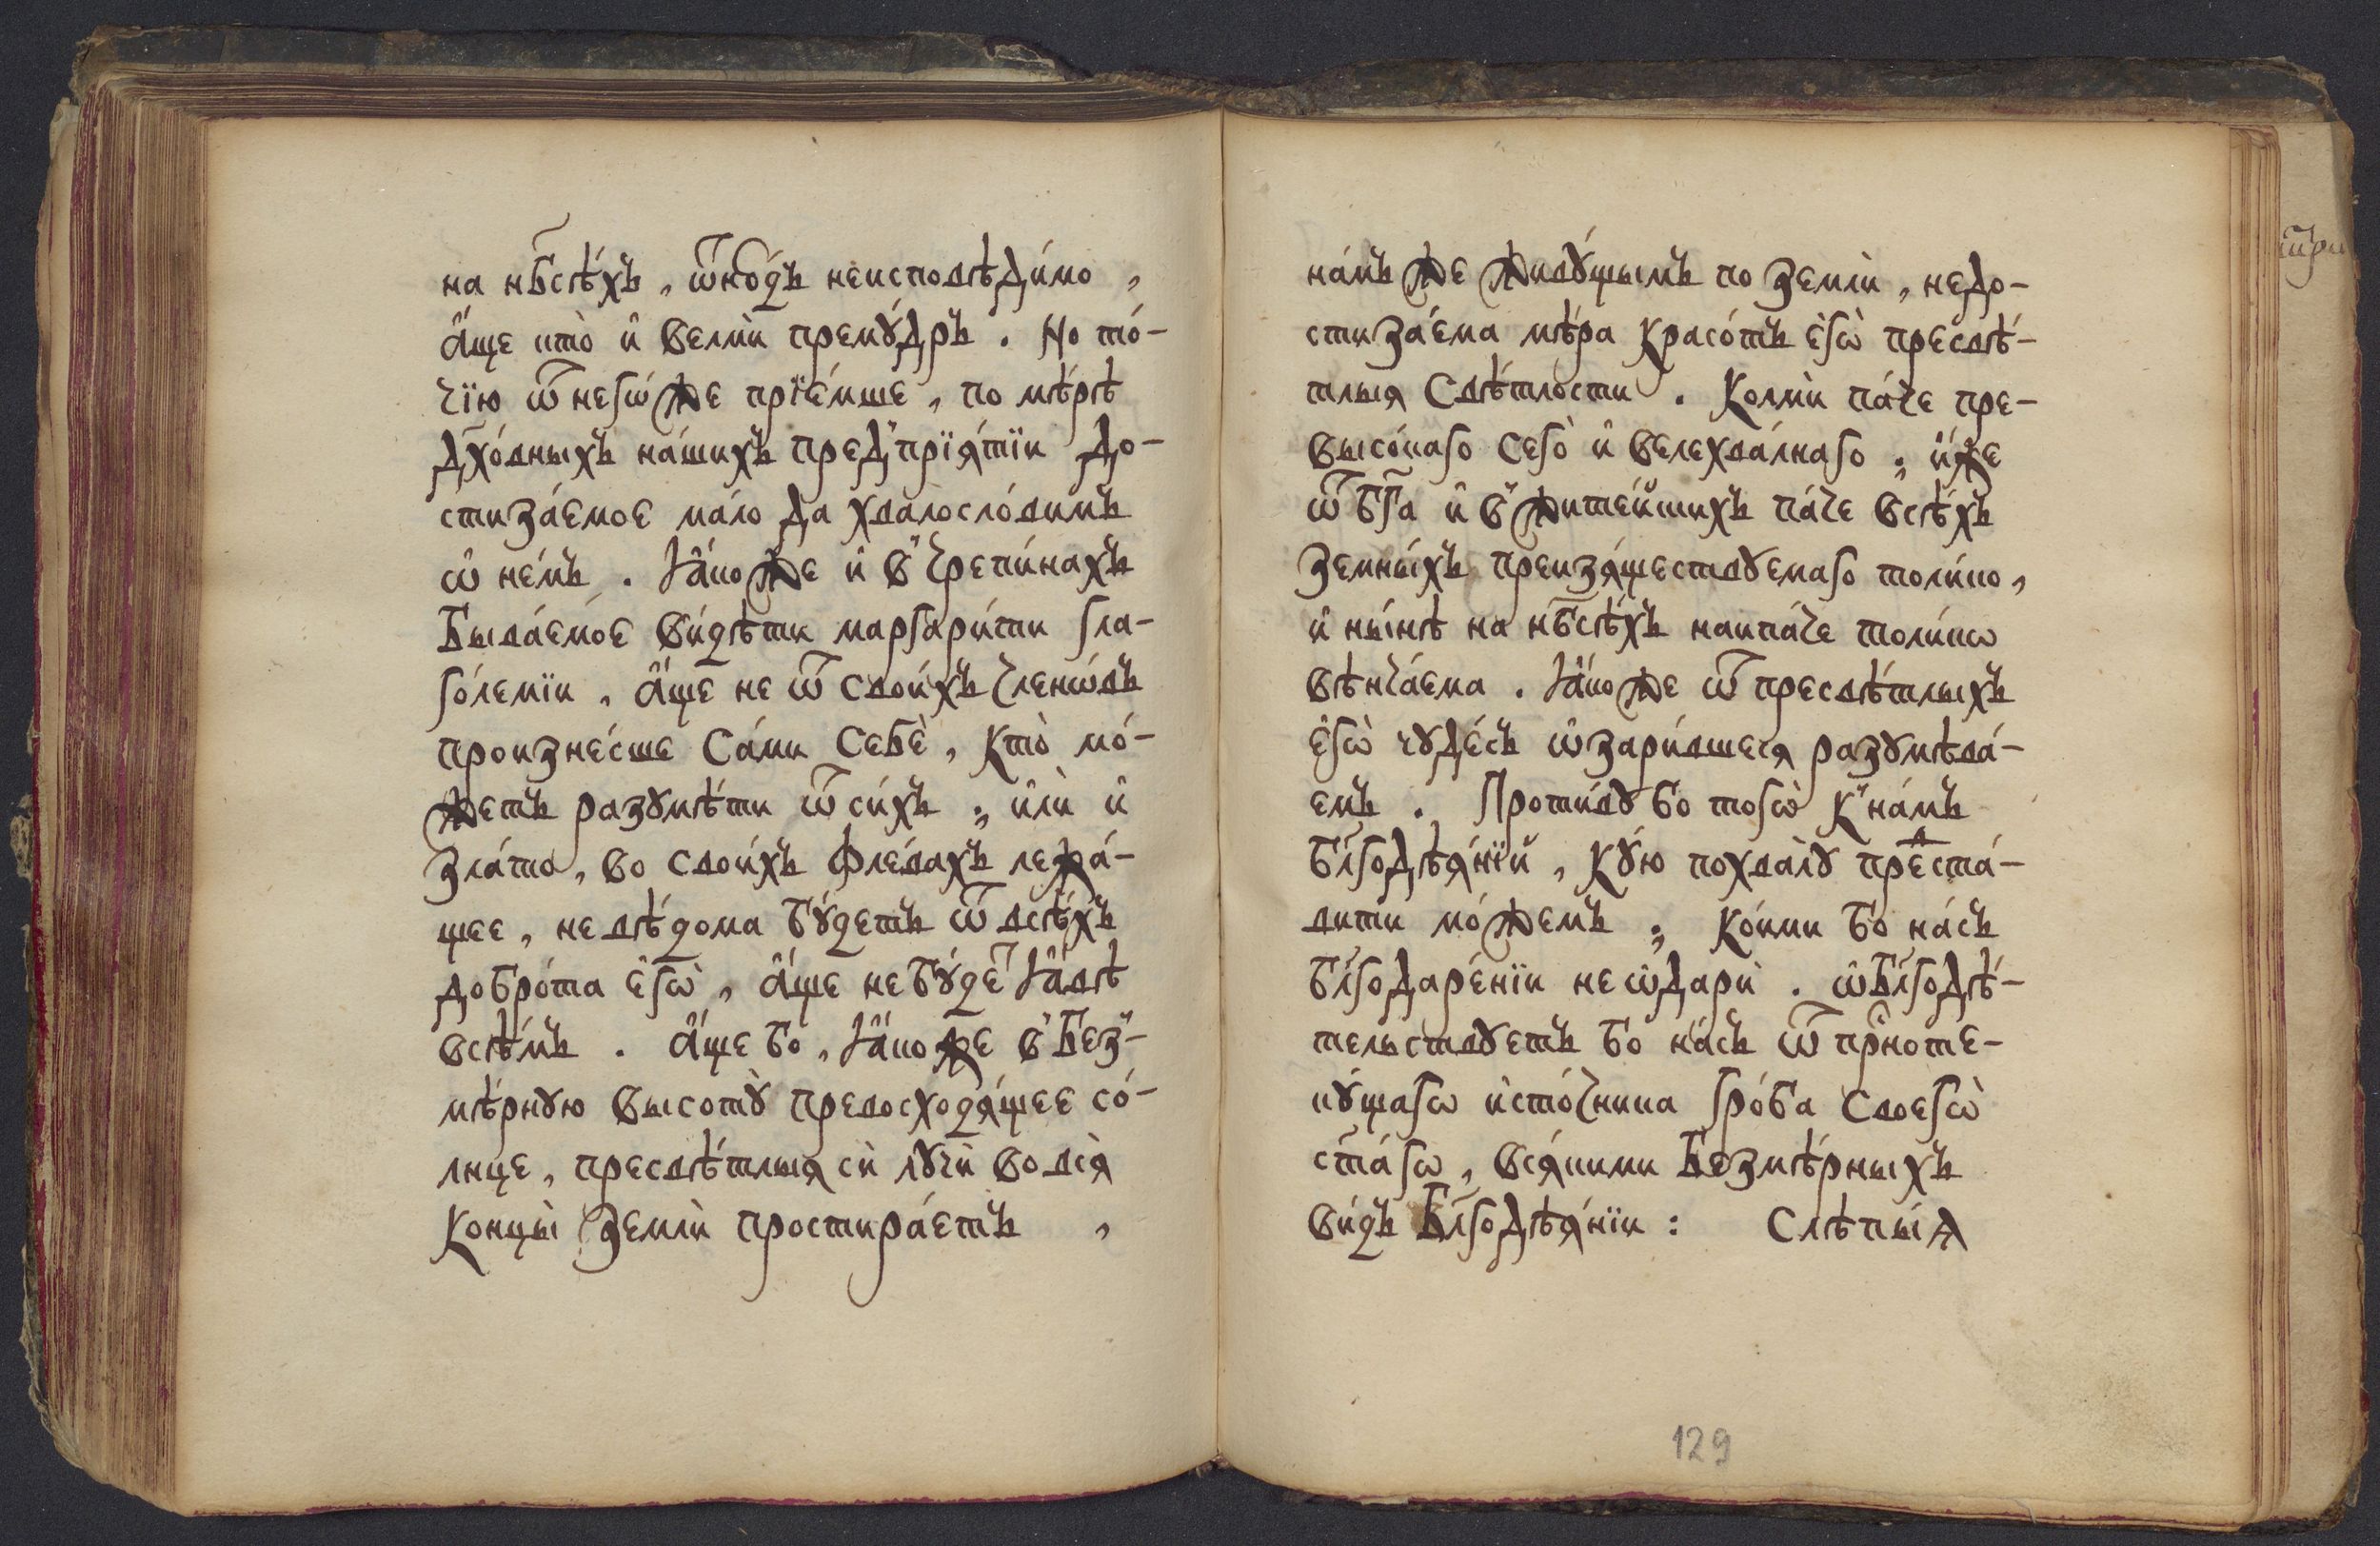 на нб҃сѣ́хъ, ѿню́дъ неисповѣди́мо,
а҆́ще кто̀ и҆ велмѝ премꙋ́дръ. Но то́-
чїю ѿ негѡ́же прїе́мше, по мѣ́рѣ
дх҃о́вныхъ на́шихъ пред̾прїѧ́тїи до-
стиза́емое ма́ло да хвалосло́вимъ
ѡ҆ не́мъ. Ꙗ҆́коже и҆ в̾ чрепи́нахъ
Быва́емое ви́дѣти маргари́ти гла-
го́лемїи, а҆́ще не ѿ свои́хъ членѡ́въ
произне́сше са́ми себѐ, кто̀ мо́-
жетъ разꙋмѣ́ти ѿ си́хъ; и҆лѝ и҆
зла́то, во свои́хъ флева́хъ лежа́-
щее, не вѣ́дома бꙋ́детъ ѿ всѣ́хъ
добро́та є҆гѡ̀, а҆́ще не бꙋ́деⷮ ꙗ҆́вѣ
всѣ́мъ. А҆́ще бо, ꙗ҆́коже в̾ Без̾-
мѣ́рнꙋю высотꙋ̀ превосходѧ́щее со́-
лнце, пресвѣ́тлыѧ сѝ лꙋчѝ во всѧ̀
концы̀ землѝ простира́етъ,
на́мъ же живꙋ́щымъ по землѝ, недо-
стиза́ема мѣ́ра красо́тъ є҆гѡ̀ пресвѣ́-
тлыѧ свѣ́тлости. Колмѝ па́че пре-
высо́каго сего̀ и҆ велехва́лнаго; и҆́же
ѿ бг҃а и҆ в̾ жите́йшихъ па́че всѣ́хъ
земны́хъ преизѧ́ществꙋемаго толи́ко,
и҆ ны́нѣ на нб҃сѣ́хъ наипа́че толи́кѡ
вѣнча́ема. Ꙗ҆́коже ѿ пресвѣ́тлыхъ
є҆гѡ̀ чꙋде́съ ѡ҆зари́вшесѧ разꙋмѣва́-
емъ. Проти́вꙋ бо тогѡ̀ к̾ на́мъ
бл҃годѣѧ́нїй, кꙋ́ю похвалꙋ̀ преⷣста́-
вити мо́жемъ; ко́ими бо на́съ
бл҃годаре́нїи не ѡ҆дарѝ. ѡ҆бл҃годѣ́-
тельствꙋетъ бо на́съ ѿ прⷭ҇ноте-
кꙋ́щагѡ и҆сто́чника гро́ба своегѡ̀
ст҃а́гѡ, всѧ́кими Безмѣ́рныхъ
ви́дъ Бл҃годѣѧ́нїи: Слѣпы́ѧ
129